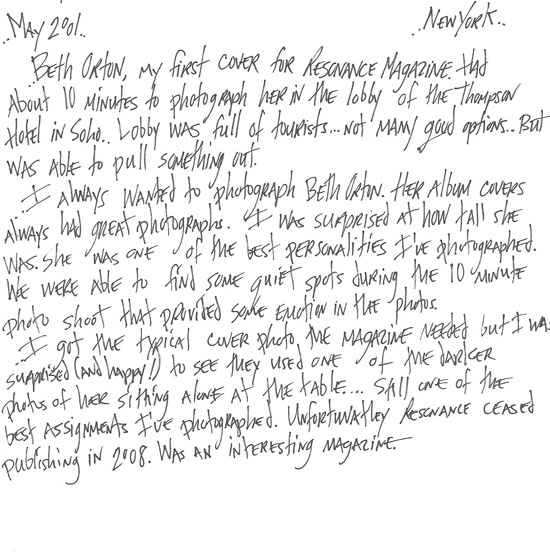 ..May 2001.. ..New York..
..Beth Orton, my first cover for Resonance Magazine. Had
about 10 minutes to photograph her in the lobby of the Thompson
Hotel in Soho.. Lobby was full of tourists...not many good options.. But
was able to pull something out.
...I always wanted to photograph Beth Orton. Her album covers
always had great photographs. I was surprised at how tall she
was. She was one of the best personalities I've photographed.
We were able to find some quiet spots during the 10 minute
photo shoot that provided some emotion in the photos.
...I got the typical cover photo the magazine needed but I was
surprised (and happy!) to see they used one of the darker
photos of her sitting alone at the table.... Still one of the
best assignments I've photographed. Unfortunatley Resonance ceased
publishing in 2008. Was an interesting magazine.